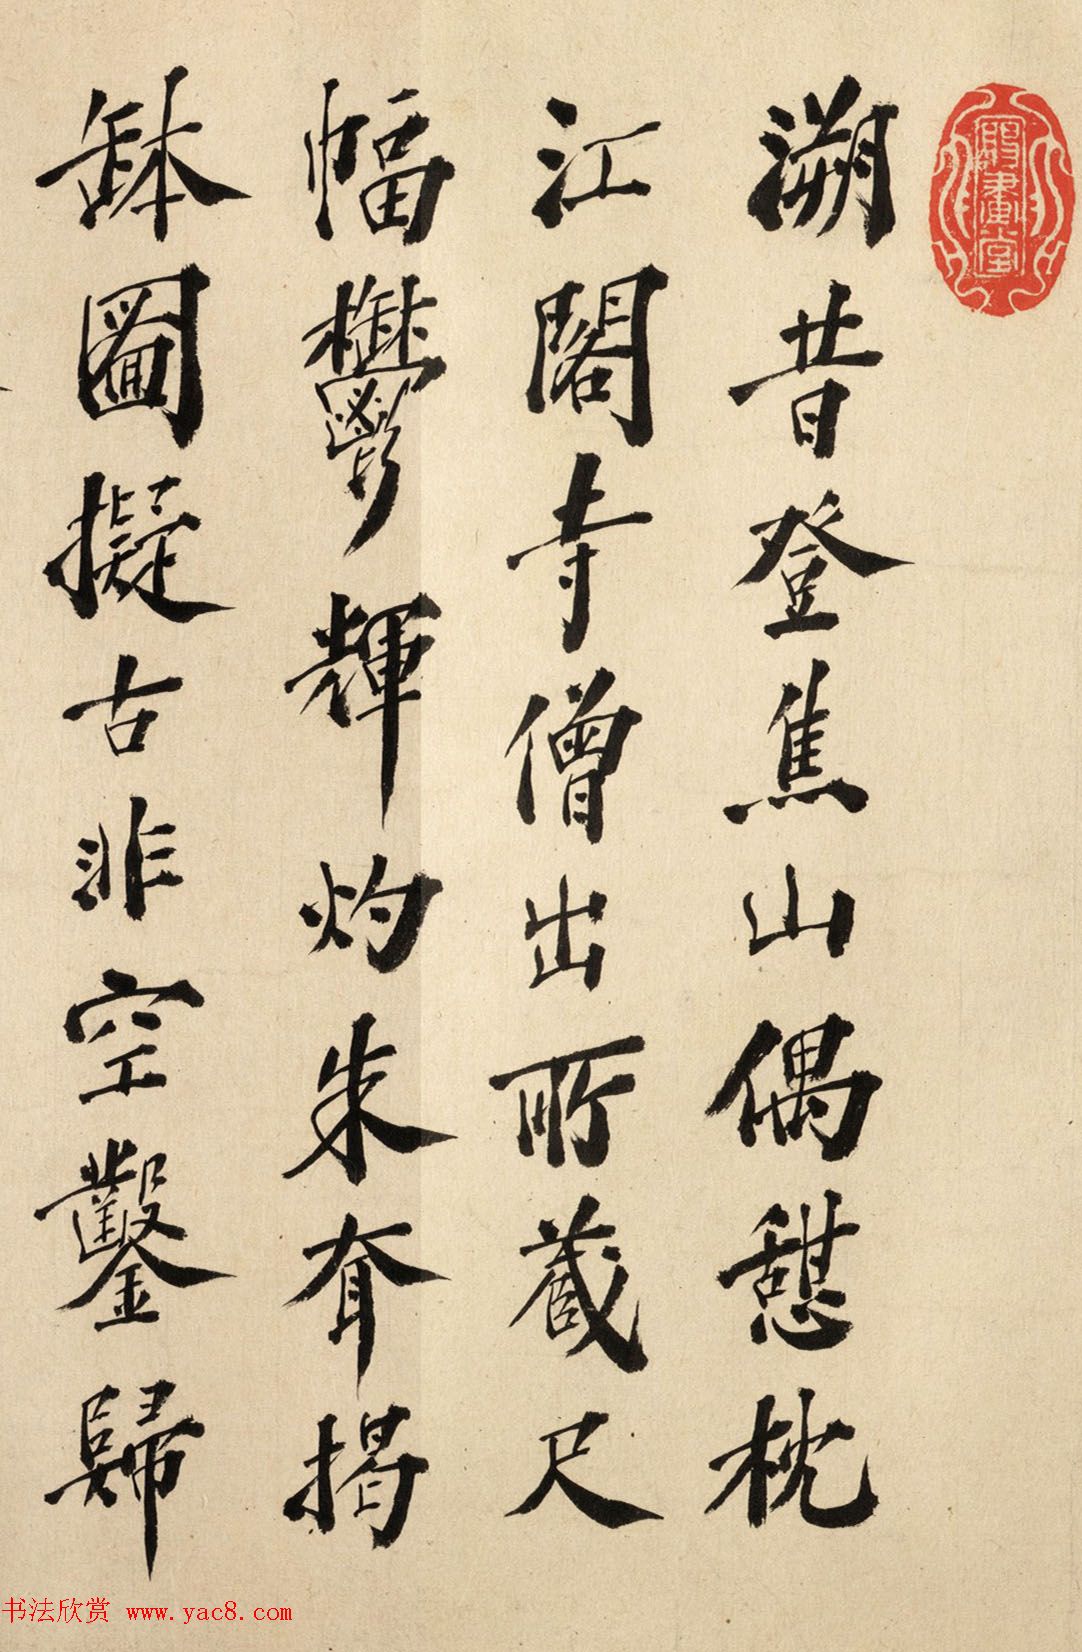 溯昔登焦山偶憇枕
江閣寺僧出所蔵尺
幅鬱輝灼朱耷揭
缽圖擬古非空鑿歸
书法欣赏 www.yac8.com